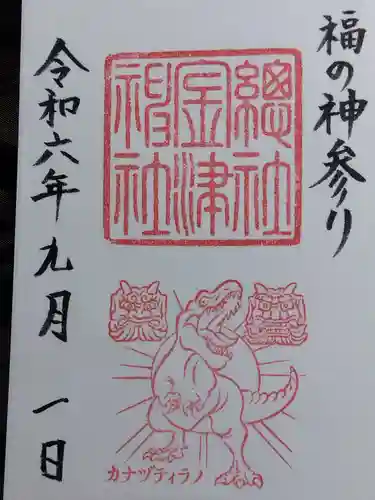 福の神参り
總社
金津
神社
令和六年九月一日
カナヅティラノ